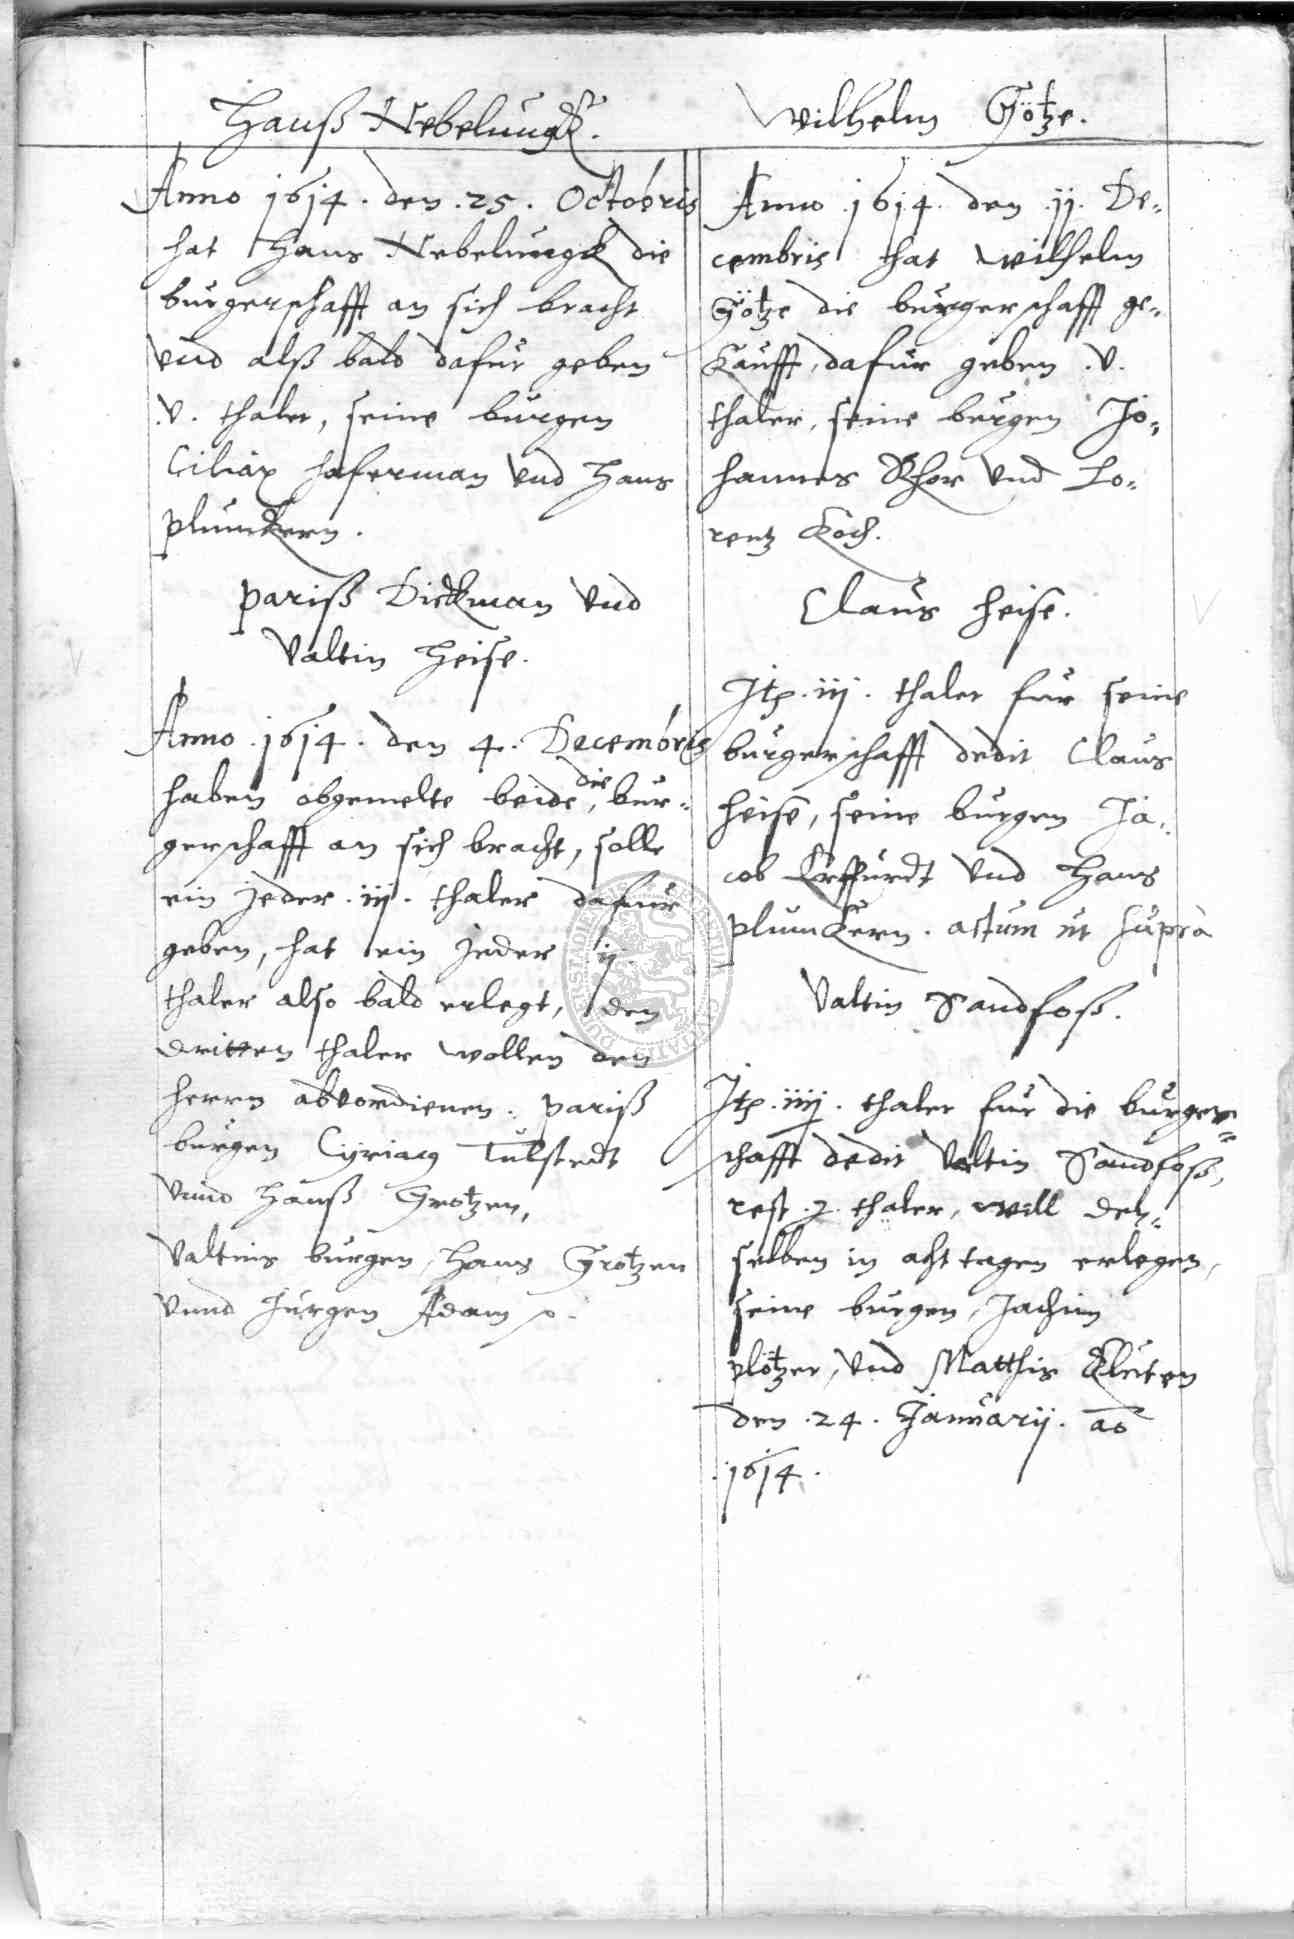 Hanß Nebelungk.
Anno 1614. den .25. Octobris
hat Hans Nebelungk die
burgerschafft an sich bracht
vnd alß bald dafur geben
.v. thaler, seine burgen
Ciliax Haferman vnd Hans
Plumkern.
Pariß Dickman vnd
Valtin Heise.
Anno .1614. den 4. Decembris
haben obgemelte beide, die bur-
gerschafft an sich bracht, solle
ein jeder .iij. thaler dafur
geben, hat ein jeder ij
thaler also bald erlegt, den
dritten thaler wollen den
herrn abvordienen. Pariß
burgen Cyriacg Tulstedt
vnnd Hanß Grotzen,
Valtins burgen, Hans Grotzen
vnnd Jurgen Adam
Wilhelm Götze.
Anno .1614. den .11. De-
cembris hat Wilhelm
Götze die burgerschafft ge-
kaufft, dafur geben .v.
thaler, seine burgen Jo-
hannes Rhor vnd Lo-
rentz Koch.
Claus Heise.
Itz .iij. thaler fur seine
burgerschafft dedit Claus
Heise, seine burgen Ja-
cob Erffurdt vnd Hans
Plumkern. actum ut supra
Valtin Sandfoß.
Itz .iiij. thaler fur die burger-
schafft dedit Valtin Sandfoß,
rest .j. thaler, will den-
selben in acht tagen erlegen,
seine burgen, Jachim
Plötzer, vnd Matthis Kluten
den .24. Januarij. ao
.1614.